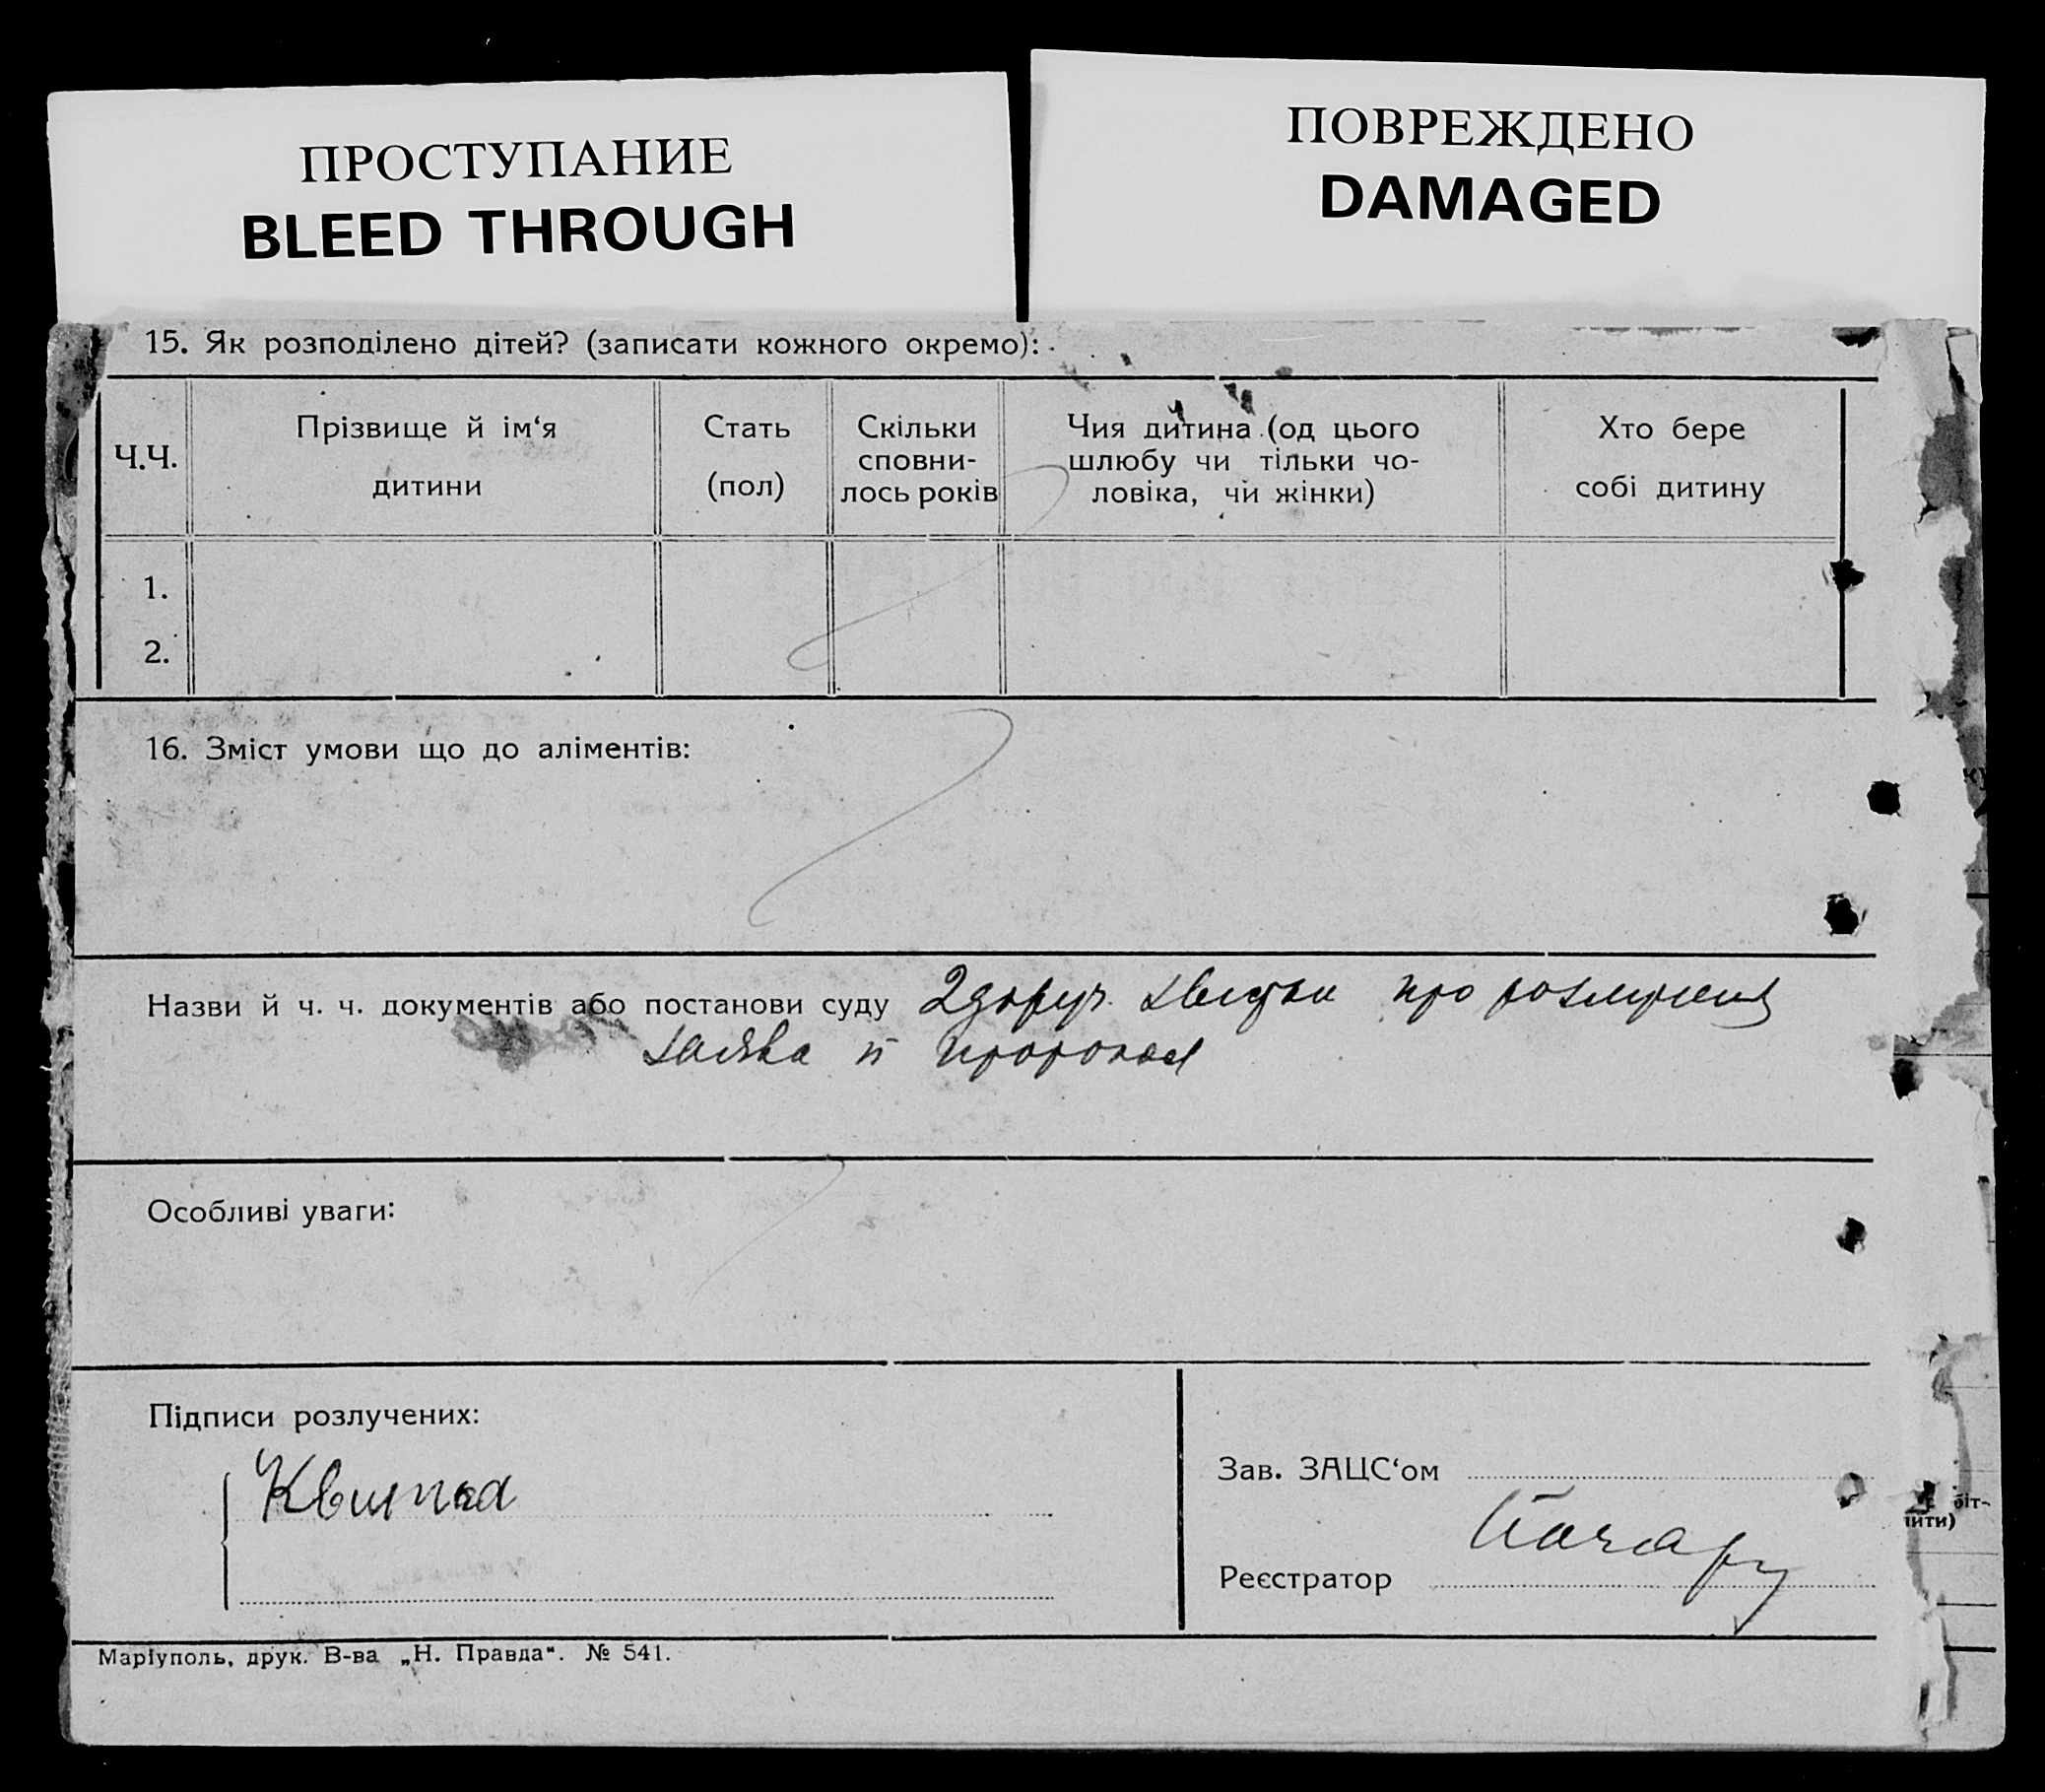 ПРОСТУПАНИЕ
BLEED THROUGH
ПОВРЕЖДЕНО
DAMAGED
15. Як розподілено дітей? (записати кожного окремо):
Ч.Ч.
Прізвище й ім‘я
дитини
Стать
(пол)
Скільки
сповни-
лось років
Чия дитина (од цього
шлюбу чи тільки чо-
ловіка, чи жінки)
Хто бере
собі дитину
1.
2.
16. Зміст умови що до аліментів:
Назви й ч. ч. документів або постанови суду про
заява й
Особливі уваги:
Підписи розлучених:
Зав. ЗАЦС‘ом
Реєстратор
Маріуполь, друк. В-ва „Н. Правда“. № 541.